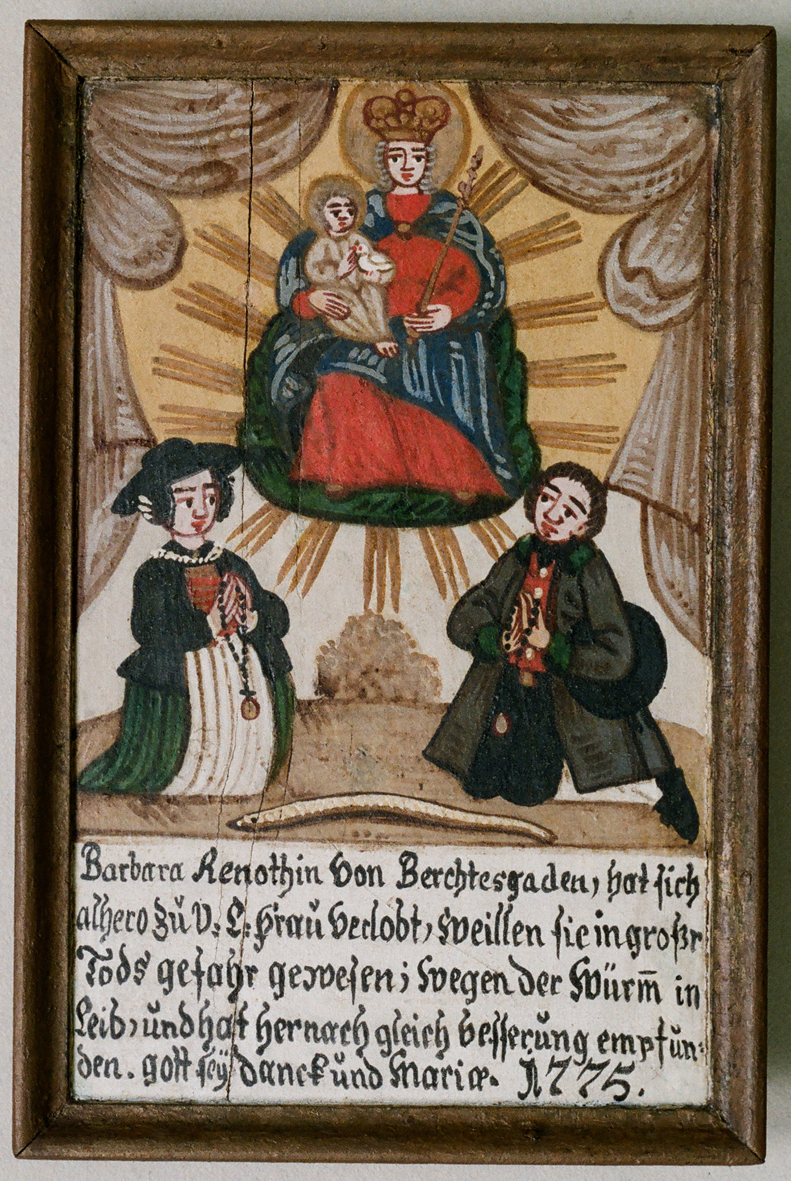 Barbara Renothin von Berchtesgaden, hat sich
alhero zu U. L. Frau verlobt, weillen sie in großr
Tods gefahr gewesen; wegen der Würm̄ in
Leib, und hat hernach gleich besserung empfun:
den. gott seÿ danck und Mariæ. 1775.